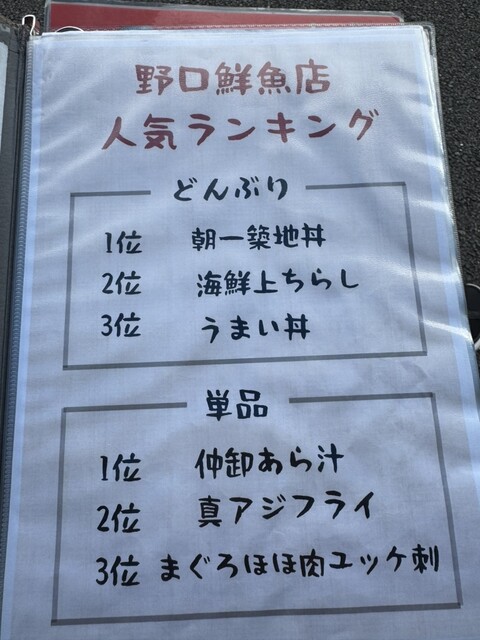 野口鮮魚店
人気ランキング
どんぶり
1位 朝一築地丼
2位 海鮮上ちらし
3位 うまい丼
単品
1位 仲卸あら汁
2位 真アジフライ
3位 まぐろほほ肉ユッケ刺